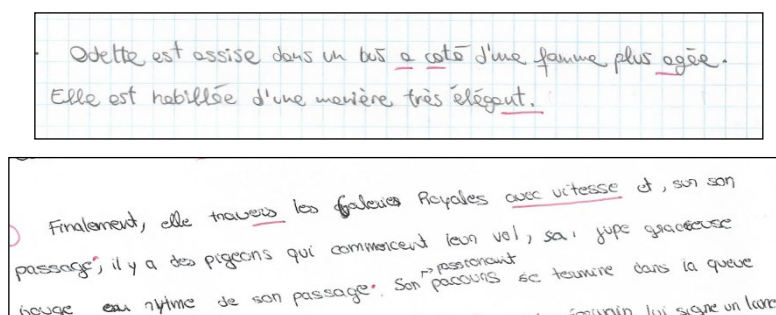 Odette est assise dans un bus a coté d'une famme plus agée.
Elle est habillée d'une manière très élégant.
Finalement, elle travers les Galeries Royales avec vitesse et, sur son
passage, il y a des pigeons qui commencent leur vol, sa jupe gracieuse
bouge au rytme de son passage. Son parcours se termine dans la queue
lui signe un